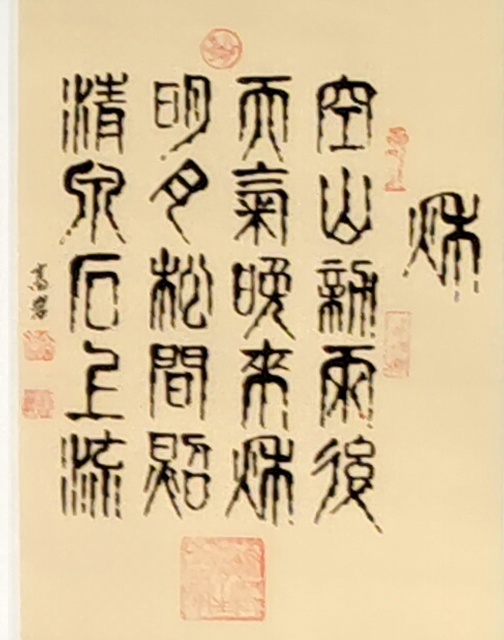 秌
空山新雨後
天氣晚來秌
明月松間照
清泉石上流